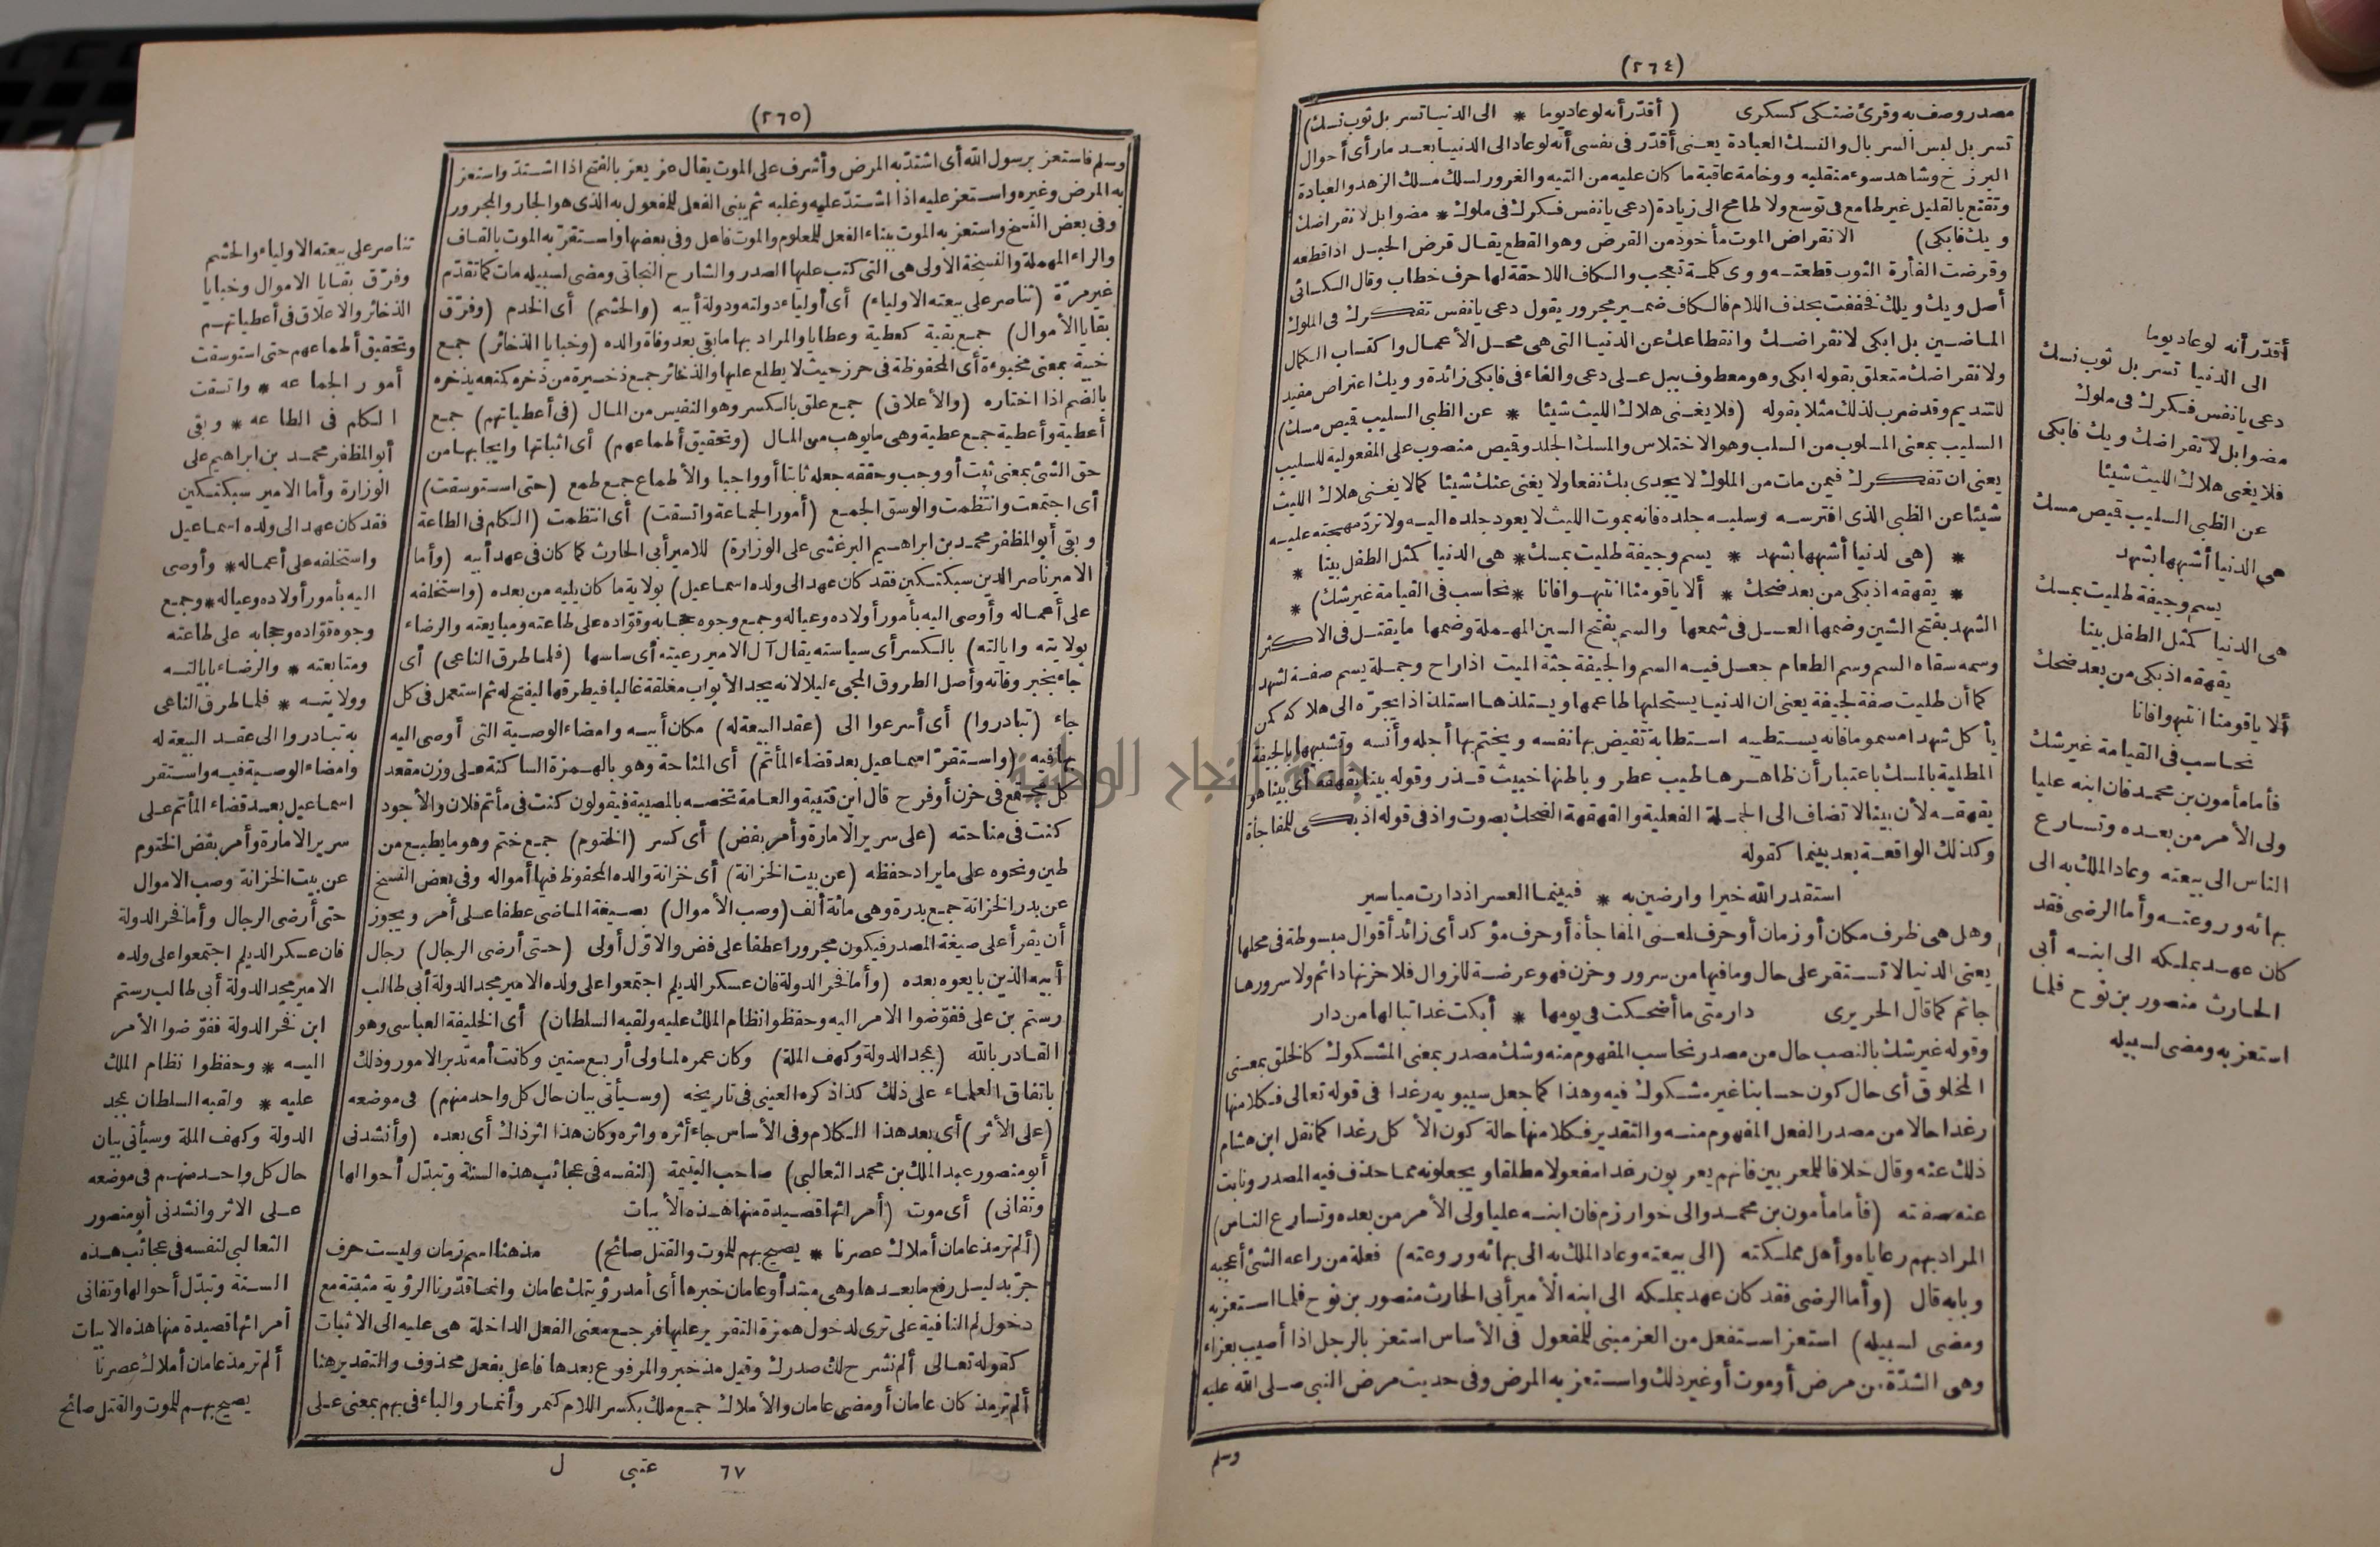 (٢٦٤)
مصدر وصف به وقرئ ضنكى كسكرى (أقدّر أنه لو عاد يوما * الى الدنيا تسربل ثوب نسك)
تسربل لبس السربال والنسك العبادة يعنى أقدّر فى نفسى أنه لو عاد الى الدنيا بعد ما رأى أحوال
البرزخ وشاهد سوء منقلبه ووخامة عاقبة ما كان عليه من التيه والغرور لسلك مسلك الزهد والعبادة
وتقنع بالقليل غير طامع فى توسع ولا طامح الى زيادة (دعى يا نفس فكرك فى ملوك * مضوا بل لانقراضك
ويك فابكى) الانقراض الموت مأخوذ من القرض وهو القطع يقال قرض الحبل اذا قطعه
وقرضت الفأرة الثوب قطعته ووى كلمة تعجب والكاف اللاحقة لها حرف خطاب وقال الكسائى
أصل ويك ويلك فخففت بحذف اللام فالكاف ضمير مجرور يقول دعى يا نفس تفكرك فى الملوك
الماضين بل ابكى لانقراضك وانقطاعك عن الدنيا التى هى محل الأعمال واكتساب الكمال
ولانقراضك متعلق بقوله ابكى وهو معطوف ببل على دعى والفاء فى فابكى زائدة وويك اعتراض مفيد
للتنديم وقد ضرب لذلك مثلا بقوله (فلا يغنى هلاك الليث شيئا * عن الظبى السليب قيص مسك)
السليب بمعنى المسلوب من السلب وهو الاختلاس والمسك الجلد وقيص منصوب على المفعولية للسليب
يعنى ان تفكرك فيمن مات من الملوك لا يجدى بك نفعا ولا يغنى عنك شيئا كما لا يغنى هلاك الليث
شيئا عن الظبى الذى افترسه وسلبه جلده فانه بموت الليث لا يعود جلده اليه ولا تردّ مهجته عليه
* (هى لدنيا أشبهها بشهد * يسم وجيفة طليت بمسك * هى الدنيا كمثل الطفل بينا *
* يقهقه اذ بكى من بعد ضحك * ألا يا قومنا انتبهوا فانا * نحاسب فى القيامة غير شك) *
الشهد بفتح الشين وضمها العسل فى شمعها والسم بفتح السين المهملة وضمها ما يقتل فى الاكثر
وسمه سقاه السم وسم الطعام جعل فيه السم والجيفة جثة الميت اذا راح وجملة يسم صفة لشهد
كما أن طليت صفة لجيفة يعنى ان الدنيا يستحليها طاعمها ويستلذها استلذاذا يجرّه الى هلاكه كمن
يأكل شهدا مسموما فانه يستطيبه استطابة تفيض بها نفسه ويختم بها أجله وأنسه وتشبيهها بالجيفة
المطلية بالمسك باعتبار أن ظاهرها طيب عطر وباطنها خبيث قذر وقوله بينا يقهقه أى بينا هو
يقهقه لأن بينا لا تضاف الى الجملة الفعلية والقهقهة الضحك بصوت واذ فى قوله اذ بكى للمفاجأة
وكذلك الواقعة بعد بينما كقوله
استقدر الله خيرا وارضين به * فبينما العسر اذ دارت مياسير
وهل هى ظرف مكان أو زمان أو حرف لمعنى المفاجأة أو حرف مؤكد أى زائد أقوال مبسوطة فى محلها
يعنى الدنيا لا تستقر على حال وما فيها من سرور وحزن فهو عرضة للزوال فلا حزنها دائم ولا سرورها
جاثم كما قال الحريرى دار متى ما أضحكت فى يومها * أبكت غدا تبا لها من دار
وقوله غير شك بالنصب حال من مصدر نحاسب المفهوم منه وشك مصدر بمعنى المشكوك كالخلق بمعنى
المخلوق أى حال كون حسابنا غير مشكوك فيه وهذا كما جعل سيبويه رغدا فى قوله تعالى فكلا منها
رغدا حالا من مصدر الفعل المفهوم منه والتقدير فكلا منها حالة كون الأكل رغدا كما نقل ابن هشام
ذلك عنه وقال خلافا للمعربين فانهم يعربون رغدا مفعولا مطلقا ويجعلونه مما حذف فيه المصدر ونابت
عنه صفته (فأما مأمون بن محمد والى خوارزم فان ابنه عليا ولى الأمر من بعده وتسارع الناس)
المراد بهم رعاياه وأهل مملكته (الى بيعته وعاد الملك به الى بهائه وروعته) فعلة من راعه الشئ أعجبه
وبابه قال (وأما الرضى فقد كان عهد بملكه الى ابنه الأمير أبى الحارث منصور بن نوح فلما استعز به
ومضى لسبيله) استعز استفعل من العز مبنى للمفعول فى الأساس استعز بالرجل اذا أصيب بعزاء
وهى الشدّة من مرض أو موت أو غير ذلك واستعز به المرض وفى حديث مرض النبى صلى الله عليه
وسلم
أقدّر أنه لو عاد يوما
الى الدنيا تسربل ثوب نسك
دعى يا نفس فكرك فى ملوك
مضوا بل لانقراضك ويك فابكى
فلا يغنى هلاك الليث شيئا
عن الظبى السليب قيص مسك
هى الدنيا أشبهها بشهد
يسم وجيفة طليت بمسك
هى الدنيا كمثل الطفل بينا
يقهقه اذ بكى من بعد ضحك
ألا يا قومنا انتبهوا فانا
نحاسب فى القيامة غير شك
فأما مأمون بن محمد فان ابنه عليا
ولى الأمر من بعده وتسارع
الناس الى بيعته وعاد الملك به الى
بهائه وروعته وأما الرضى فقد
كان عهد بملكه الى ابنه أبى
الحارث منصور بن نوح فلما
استعز به ومضى لسبيله
(٢٦٥)
وسلم فاستعز برسول الله أى اشتدّ به المرض وأشرف على الموت يقال عز يعز بالفتح اذا اشتدّ واستعز
به المرض وغيره واستعز عليه اذا اشتدّ عليه وغلبه ثم بنى الفعل للمفعول به الذى هو الجار والمجرور
وفى بعض النسخ واستعز به الموت ببناء الفعل للمعلوم والموت فاعل وفى بعضها واستقرّ به الموت بالقاف
والراء المهملة والنسخة الأولى هى التى كتب عليها الصدر والشارح النجاتى ومضى لسبيله مات كما تقدّم
غير مرّة (تناصر على بيعته الاولياء) أى أولياء دولته ودولة أبيه (والحشم) أى الخدم (وفرّق
بقايا الأموال) جمع بقية كعطية وعطايا والمراد بها ما بقى بعد وفاة والده (وخبايا الذخائر) جمع
خبية بمعنى مخبوءة أى المحفوظة فى حرز حيث لا يطلع عليها والذخائر جمع ذخيرة من ذخره كمنعه يذخره
بالضم اذا اختاره (والأعلاق) جمع علق بالكسر وهو النفيس من المال (فى أعطياتهم) جمع
أعطية وأعطية جمع عطية وهى ما يوهب من المال (وتحقيق أطماعهم) أى اثباتها وايجابها من
حق الشئ بمعنى ثبت أو وجب وحققه جعله ثابتا أو واجبا والأطماع جمع طمع (حتى استوسقت)
أى اجتمعت وانتظمت والوسق الجمع (أمور الجماعة واتسقت) أى انتظمت (الكلم فى الطاعة
وبقى أبو المظفر محمد بن ابراهيم البرغشى على الوزارة) للامير أبى الحارث كما كان فى عهد أبيه (وأما
الامير ناصر الدين سبكتكين فقد كان عهد الى ولده اسماعيل) بولاية ما كان يليه من بعده (واستخلفه
على أعماله وأوصى اليه بأمور أولاده وعياله وجمع وجوه حجابه وقوّاده على طاعته ومبايعته والرضاء
بولايته وايالته) بالكسر أى سياسته يقال آل الامير رعيته أى ساسها (فلما طرق الناعى) أى
جاء بخبر وفاته وأصل الطروق المجىء ليلا لانه يجد الأبواب مغلقة غالبا فيطرقها ليفتح له ثم استعمل فى كل
جاء (تبادروا) أى أسرعوا الى (عقد البيعة له) مكان أبيه وامضاء الوصية التى أوصى اليه
بها فيه (واستقرّ اسماعيل بعد قضاء المأتم) أى المناحة وهو بالهمزة الساكنة على وزن مقعد
كل مجتمع فى حزن أو فرح قال ابن قتيبة والعامة تخصه بالمصيبة فيقولون كنت فى مأتم فلان والأجود
كنت فى مناحته (على سرير الامارة وأمر بفض) أى كسر (الختوم) جمع ختم وهو ما يطبع من
طين ونحوه على ما يراد حفظه (عن بيت الخزانة) أى خزانة والده المحفوظ فيها أمواله وفى بعض النسخ
عن بدر الخزانة جمع بدرة وهى مائة ألف (وصب الأموال) بصيغة الماضى عطفا على أمر ويجوز
أن يقرأ على صيغة المصدر فيكون مجرورا عطفا على فض والاوّل أولى (حتى أرضى الرجال) رجال
أبيه الذين بايعوه بعده (وأما فخر الدولة فان عسكر الديلم اجتمعوا على ولده الامير مجد الدولة أبى طالب
رستم بن على ففوّضوا الامر اليه وحفظوا نظام الملك عليه ولقبه السلطان) أى الخليفة العباسى وهو
القادر بالله (بمجد الدولة وكهف الملة) وكان عمره لما ولى أربع سنين وكانت أمه تدبر الامور وذلك
باتفاق العلماء على ذلك كذا ذكره العينى فى تاريخه (وسيأتى بيان حال كل واحد منهم) فى موضعه
(على الأثر) أى بعد هذا الكلام وفى الأساس جاء أثره واثره وكان هذا اثر ذاك أى بعده (وأنشدنى
أبو منصور عبد الملك بن محمد الثعالبى) صاحب اليتيمة (لنفسه فى عجائب هذه السنة وتبدّل أحوالها
وتفانى) أى موت (أمرائها قصيدة منها هذه الأبيات
(ألم تر مذ عامان أملاك عصرنا * يصيح بهم للموت والقتل صائح) مذ هنا اسم زمان وليست حرف
جرّ بدليل رفع ما بعدها وهى مبتدأ وعامان خبرها أى أمد رؤيتك عامان وانما قدّرنا الرؤية مثبتة مع
دخول لم النافية على ترى لدخول همزة التقرير عليها فرجع معنى الفعل الداخلة هى عليه الى الاثبات
كقوله تعالى ألم نشرح لك صدرك وقيل مذ خبر والمرفوع بعدها فاعل بفعل محذوف والتقدير هنا
ألم تر مذ كان عامان أو مضى عامان والأملاك جمع ملك بكسر اللام كنمر وأنمار والباء فى بهم بمعنى على
تناصر على بيعته الاولياء والحشم
وفرّق بقايا الاموال وخبايا
الذخائر والاعلاق فى أعطياتهم
وتحقيق أطماعهم حتى استوسقت
أمور الجماعه * واتسقت
الكلم فى الطاعه * وبقى
أبو المظفر محمد بن ابراهيم على
الوزارة وأما الامير سبكتكين
فقد كان عهد الى ولده اسماعيل
واستخلفه على أعماله * وأوصى
اليه بأمور أولاده وعياله * وجمع
وجوه قوّاده وحجابه على طاعته
ومتابعته * والرضاء بايالته
وولايته * فلما طرق الناعى
به تبادروا الى عقد البيعة له
وامضاء الوصية فيه واستقر
اسماعيل بعد قضاء المأتم على
سرير الامارة وأمر بفض الختوم
عن بيت الخزانة وصب الاموال
حتى أرضى الرجال وأما فخر الدولة
فان عسكر الديلم اجتمعوا على ولده
الامير مجد الدولة أبى طالب رستم
ابن فخر الدولة ففوّضوا الأمر
اليه * وحفظوا نظام الملك
عليه * ولقبه السلطان بمجد
الدولة وكهف الملة وسيأتى بيان
حال كل واحد منهم فى موضعه
على الاثر وانشدنى أبو منصور
الثعالبى لنفسه فى عجائب هذه
السنة وتبدّل أحوالها وتفانى
أمرائها قصيدة منها هذه الابيات
ألم تر مذ عامان أملاك عصرنا
يصيح بهم للموت والقتل صائح
٦٧ عتبى ل
جامعة النجاح الوطنية